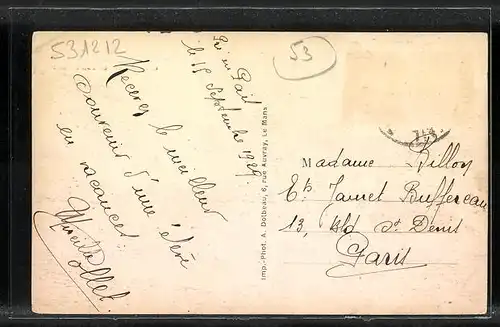 531212
53
le 15 Septembre 1929
Recevez le meilleur
souvenir d'une élève
en vacances
Imp.-Phot. A. Dolbeau, 6, rue Auvray, Le Mans
Madame Billon
Ets Jamet Buffereau
13, Bld St Denis
Paris